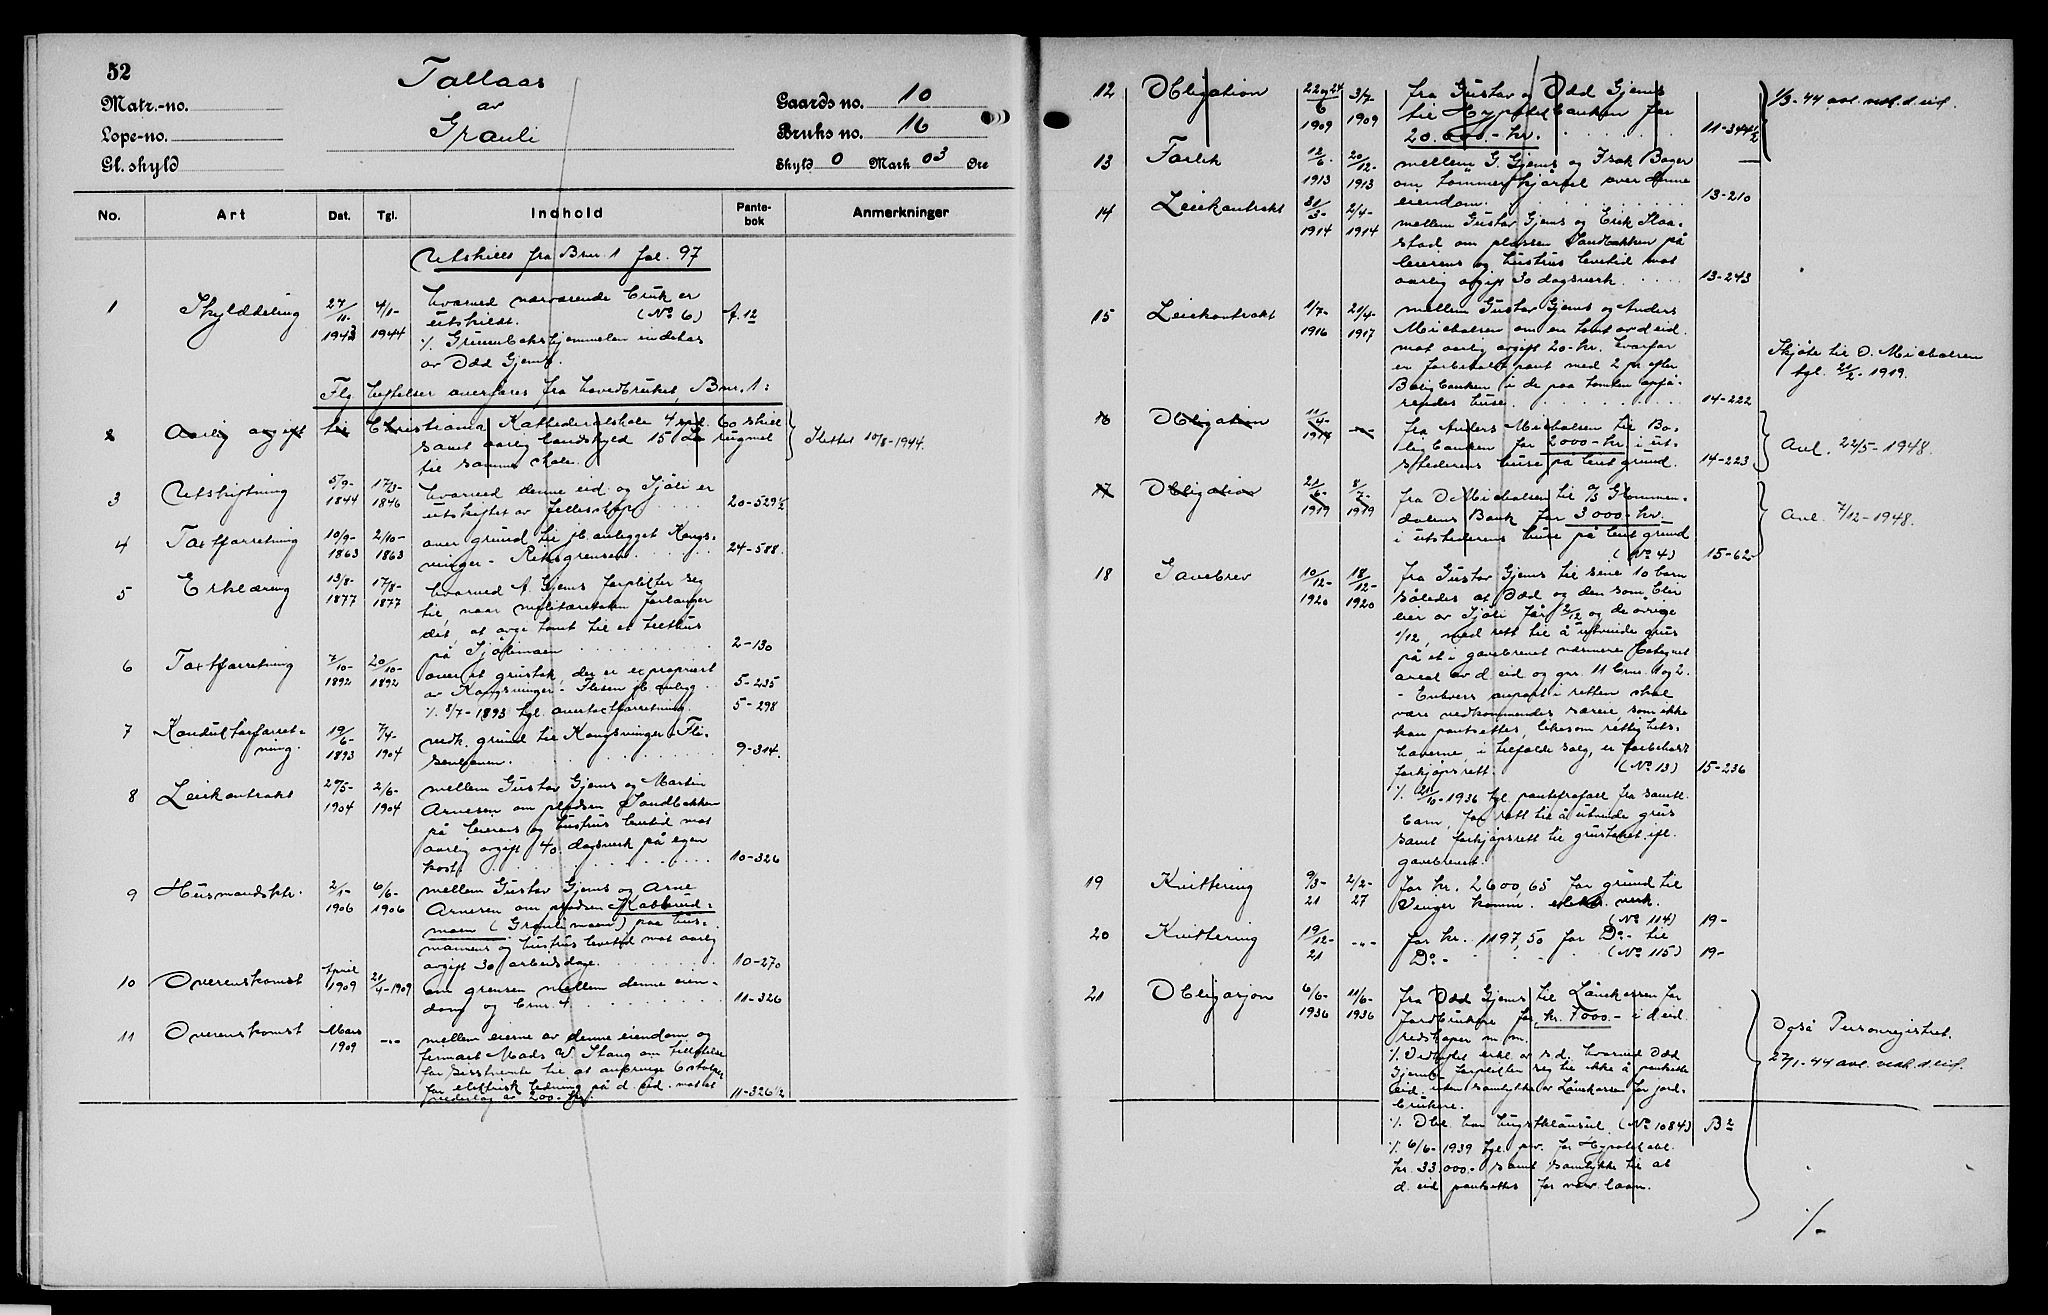 52
Tallaas
av
Grauli
Matr.-no.
Løpe-no.
Gl. skyld
Gaards no. 10
Bruks no. 16
Skyld 0 Mark 03 Øre
No. Art Dat. Tgl. Indhold Pantebok Anmerkninger
Utskilles fra Brnr. 1 fol. 97
1 Skylddeling 27/11- 1943 4/1- 1944 hvorved nærværende bruk er
utskildt. (No 6) A. 12
./. Grunnbokshjemmelen indehas
av Odd Gjems.
Flg. heftelser overføres fra hovedbruket, Bnr. 1:
2 Aarlig avgift til Christiania Kathedralskole 4 spd. 60 skill
samt aarlig landskyld 15 rugmel
til samme skole. Slettet 10/8-1944.
3 Utskiftning 5/9- 1844 17/3- 1846 hvorved denne eid. og Sjøli er
utskiftet av fellesskap 20-529½
4 Taxtforretning 10/9- 1863 2/10- 1863 over grund til jb. anlegget Kongs-
vinger - Riksgrensen. 24-588.
5 Erklæring 13/8- 1877 17/8- 1877 hvorved A. Gjems forplikter seg
til, naar militæretaten forlanger
det, at avgi tomt til et telthus
på Sjølimoen 2-130
6 Taxtforretning 7/10- 1892 20/10- 1892 over et grustak, der er exproprieret
av Kongsvinger - Flisen jb. anlegg 5-235
./. 8/7-1893 tgl. overtaxtforretning. 5-298
7 Konduktørforret-
ning. 19/6- 1893 7/4- 1904 vedk. grund til Kongsvinger - Fli-
senbanen. 9-314.
8 Leiekontrakt 27/5- 1904 2/6- 1904 mellem Gustav Gjems og Martin
Arnesen om pladsen Sandbakken
på leierens og hustrus levetid mot
aarlig avgift 40 dagsverk på egen
kost. 10-326
9 Husmandsktr. 2/1- 1906 6/6- 1906 mellem Gustav Gjems og Arne
Arnesen om pladsen Kobberud-
moen (Graulimoen) paa hus-
mannens og hustrus levetid mot aarlig
avgift 30 arbeidsdage. 10-270
10 Overenskomst April 1909 21/4-1909 om grensen mellem denne eien-
dom og brnr. 4 11-326
11 Overenskomst Mars 1909 -"- mellem eierne av denne eiendom og
firmaet Mads W. Stang om tillatelse
for sisstnevnte til at anbringe 6 stolper
for elektrisk ledning på d. eid. mot et
vederlag av 200.- kr. 11-326½
12 Obligation 22 og 24/6 1909 3/7- 1909 fra Gustav og Odd Gjems
til Hypotekbanken for
20.000.- kr. 11-344½ 1/3-44 avl. vedk. d. eid.
13 Forlik 12/6. 1913 20/12- 1913 mellem G. Gjems og Isak Bager
om tømmerkjørsel over denne
eiendom. 13-210
14 Leiekontrakt 31/3- 1914 2/4- 1914 mellem Gustav Gjems og Erik Slaa-
stad om plassen Sandbakken på
leierens og hustrus levetid mot
aarlig avgift 30 dagsverk. 13-243
15 Leiekontrakt 1/7- 1916 21/4- 1917 mellem Gustav Gjems og Anders
Michalsen om en tomt av d. eid.
mot aarlig avgift 20.- kr. hvorfor
er forbeholt pant med 2 pr. efter
Boligbanken i de paa tomten opfø-
rendes huse. 14-222 Skjøte til O. Michalsen
tgl. 21/2-1919.
16 Obligation 11/4- -"- fra Anders Michalsen til Bo-
ligbanken for 2000.- kr. i ut-
stederens huse på leiet grund. 14-223 Avl. 22/5-1948.
17 Obligation 21/6- 1919 8/7- 1919 fra O. Michalsen til A/S Glommen-
dalens Bank for 3000.- kr.
i utstederens huse på leiet grund
(No 4) 15-62 Avl. 7/12-1948.
18 Gavebrev 10/12- 1920 18/12- 1920 fra Gustav Gjems til sine 10 barn
således at Odd og den som blir
eier av Sjøli får 2/12 og de øvrige
1/12, med rett til å utvinde grus
på et i gavebrevet nærmere betegnet
areal av d. eid. og gnr. 11 brnr. 1 og 2.
- Enhvers anpart i retten skal
være vedkommendes særeie, som ikke
kan pantsettes, likesom rettighets-
haverne, i tilfælde salg, er forbeholt
forkjøpsrett. (No 13) 15-236
./. 21/10-1936 tgl. pantefrafall fra samtl.
barn, for rett til å utvinde grus
samt forkjøpsrett til grustaket ifl.
gavebrevet.
19 Kvittering 9/3- 21 2/2- 27 for kr. 2600,65 for grund til
Vinger komm. elektr. verk.
(No 114) 19-
20 Kvittering 19/12- 21 -"- for kr. 1197,50 for Do- til
Do- (No 115) 19-
21 Obligasjon 6/6- 1936 11/6- 1936 fra Odd Gjems til Lånekassen for
Jordbrukere for kr. 7000.- i d. eid.
redskaper m.m.
./. Vedheftet erkl. av s.d. hvorved Odd
Gjems forplikter seg til ikke å pantsette
eid. uten samtykke av Lånekassen for jord-
brukere.
./. Obl. har lugstklausul. (No 1084) B2
./. 6/6-1939 tgl. prv. for Hypotekobl.
kr. 33.000.- samt samtykke til at
d. eid. pantsettes for nevnte laan.
Også Personregistret.
27/1-44 avl. vedk. d. eid.
./-